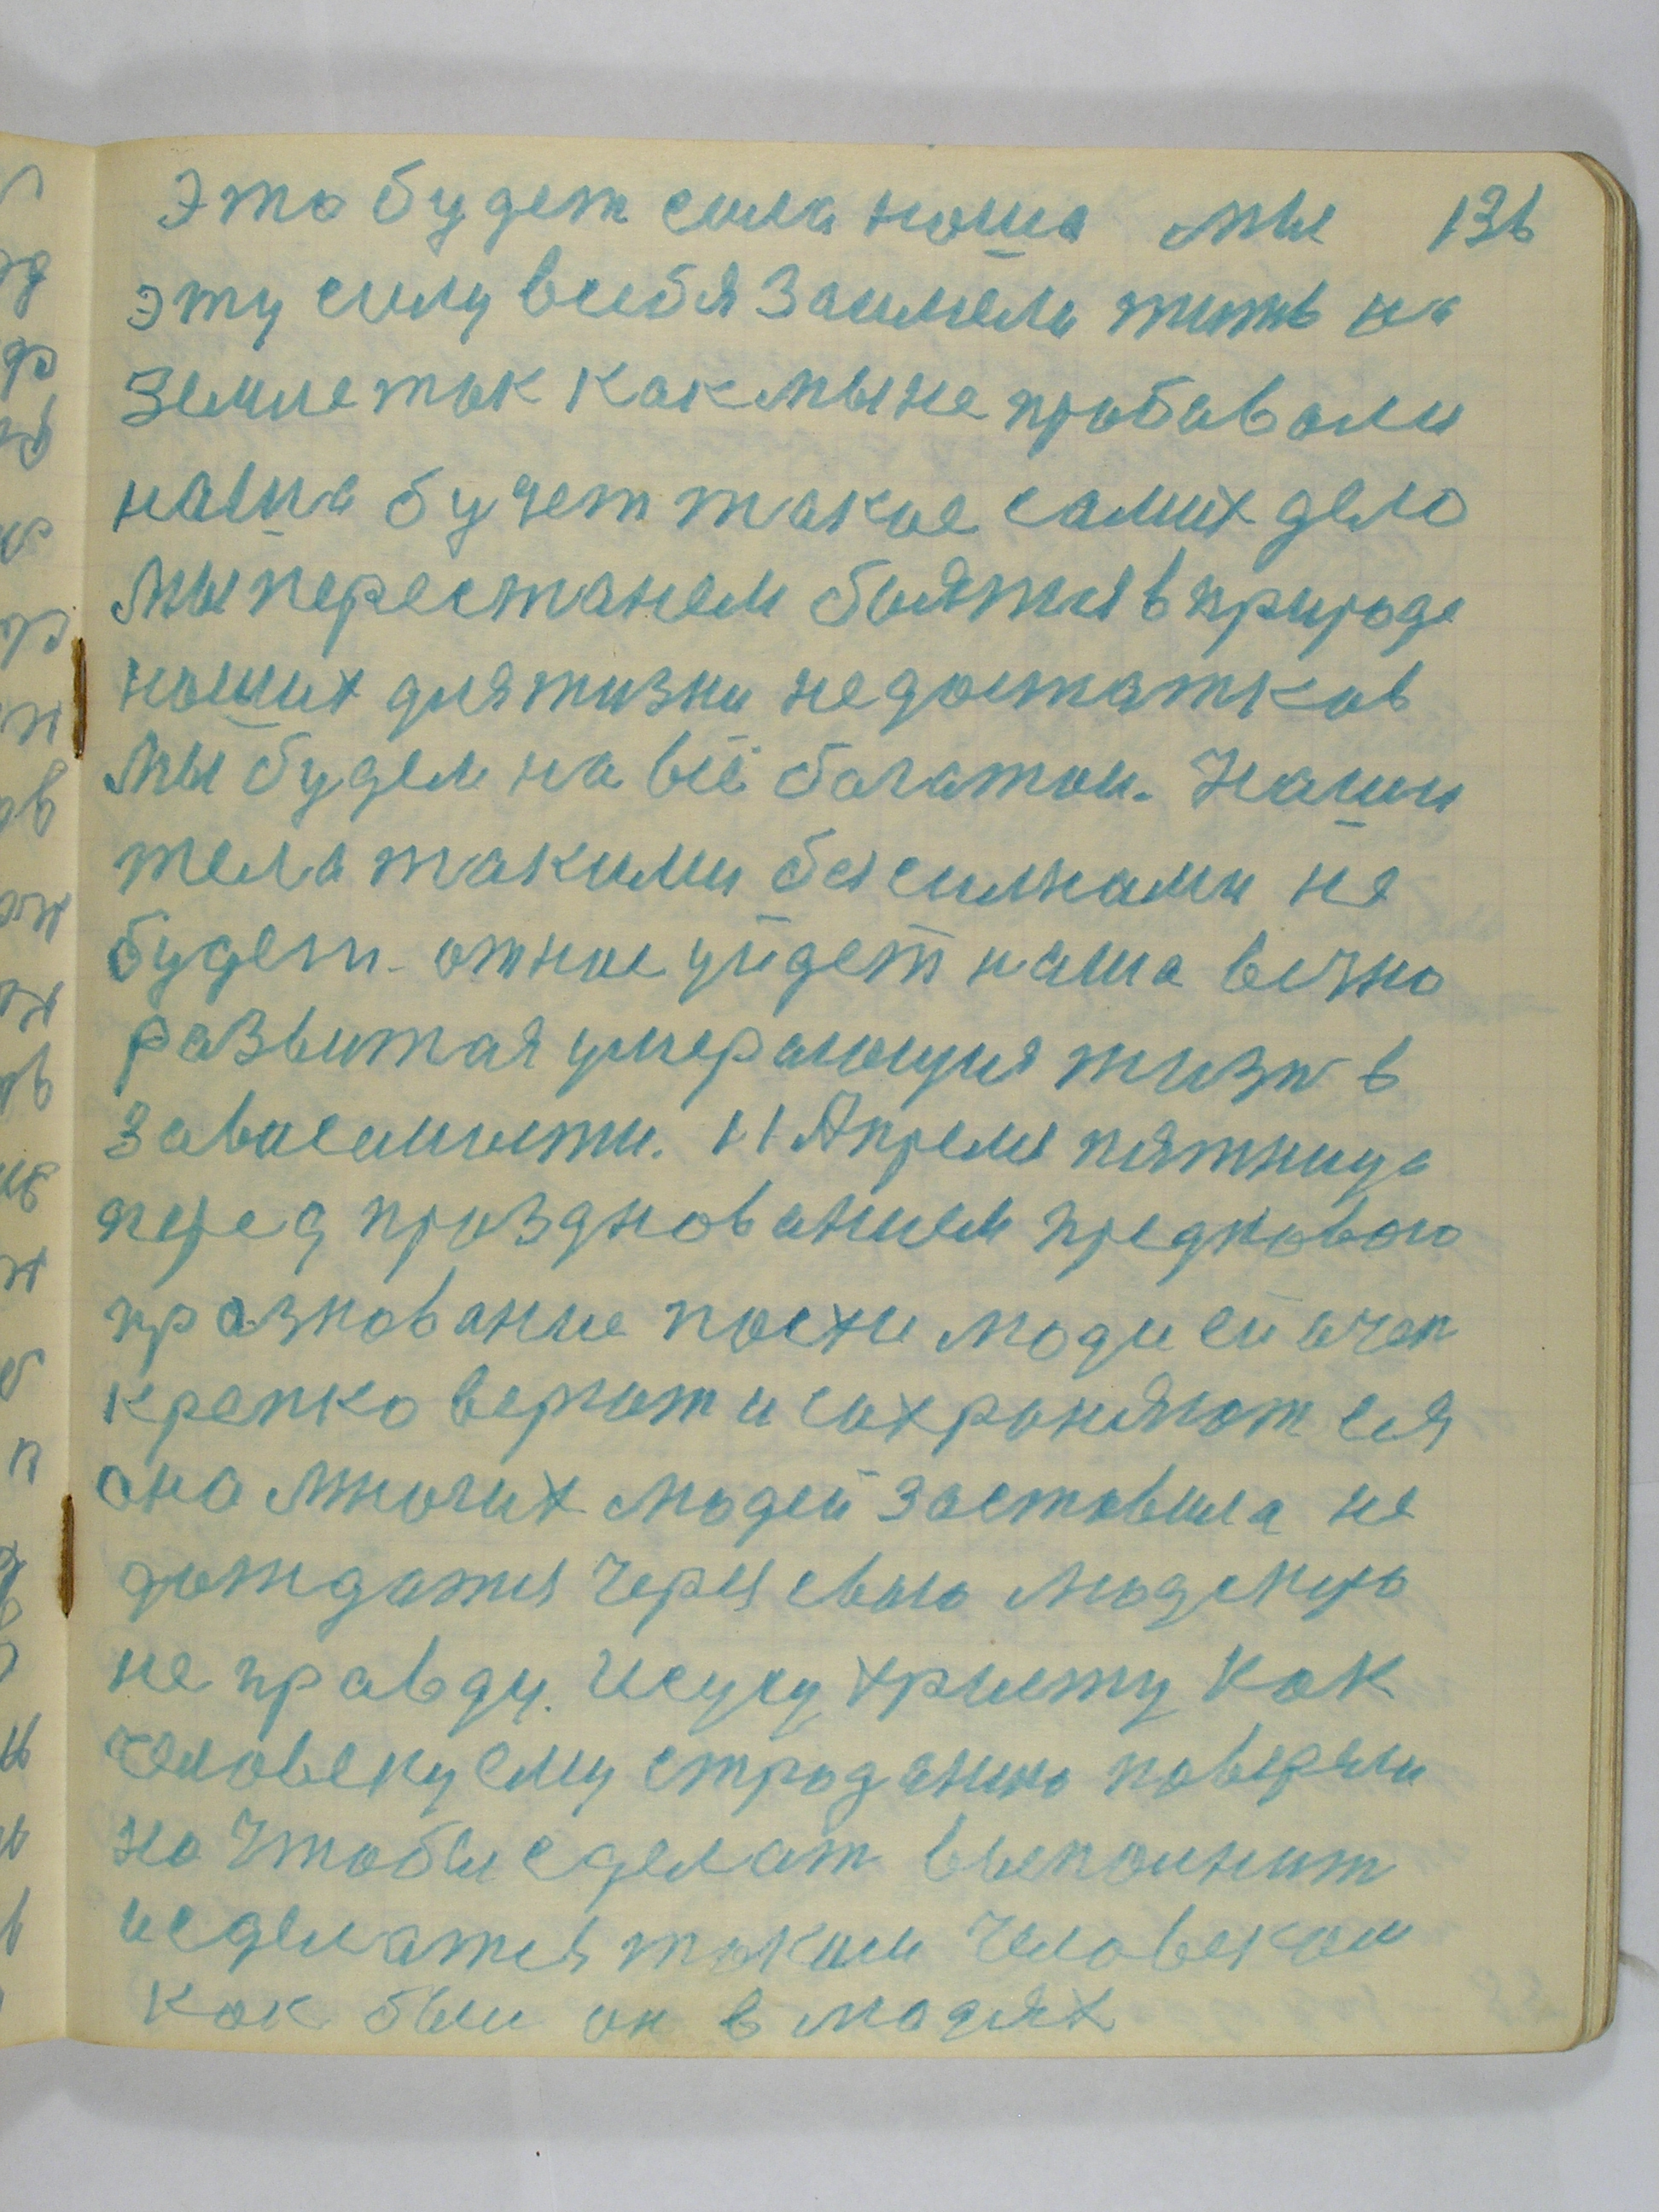 Это будет сила наша мы 136
эту силу всебя заимели жить на
Земле так как мы не пробавали
наша будет такое самих дело
мы перестанем боятся в природе
наших для жизни недостатков
мы будем на всё богатои. Наши
тела такими безсилнами не
будет. отнас уйдет наша вечно
развитая умерающия жизн в
завасемости. 11 Апреля пятница
перед празднованием предковою
празнование пасхи люди ей очен
крепко верят и сохраняют ея
она многих людей заставила не
дождатся через свою людскую
не правду. Исусу Христу как
человеку ему страданию поверяли
но чтобы сделат выполнит
исделатся таким человеком
как был он в людях